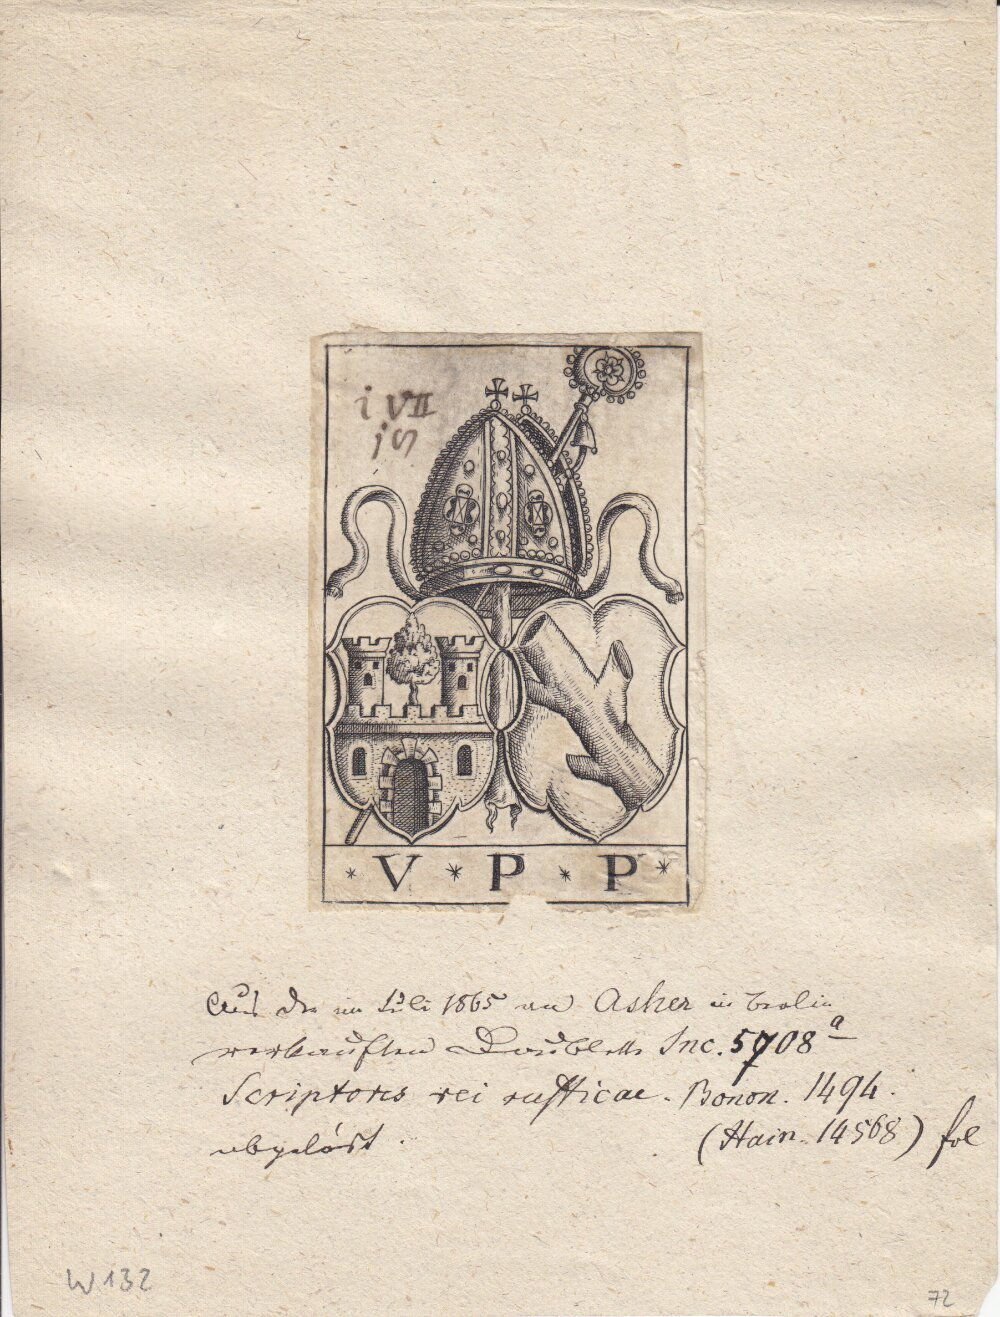 i VII
iS
* V * P * P *
Aus der im Juli 1865 an Asher in Berlin
verkauften Doublette Inc. 5708 a
Scriptores rei rusticae. Bonon. 1494.
abgelöst. (Hain. 14568) fol
W 132
72